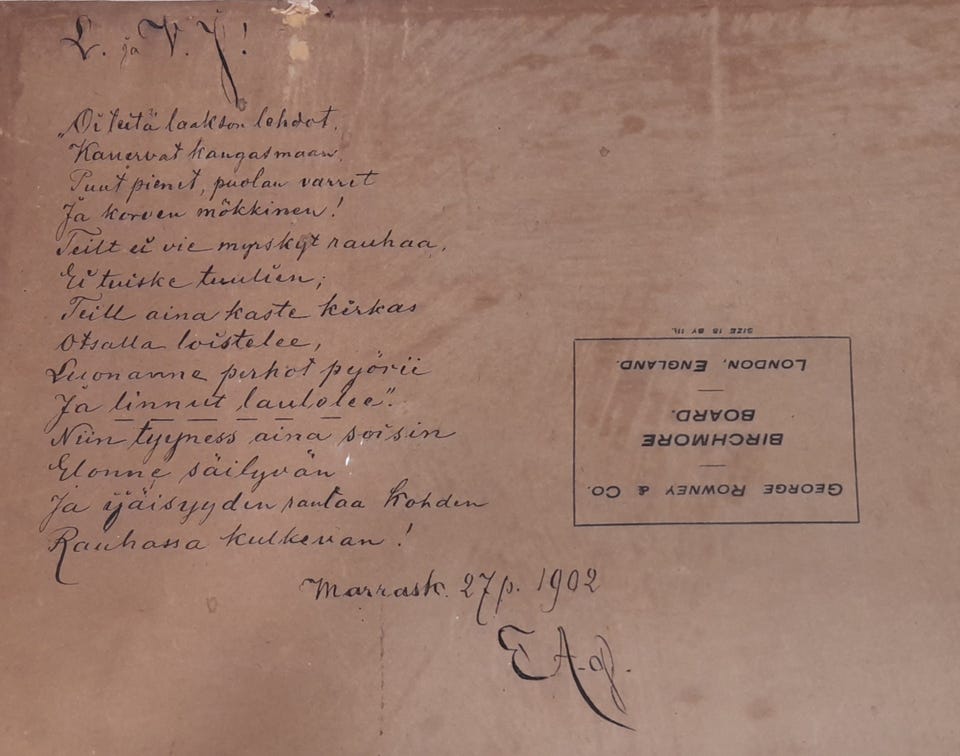 L. ja V. J!
„Oi teitä laakson lehdot,
Kanervat kangasmaan,
Puut pienet, puolan varret
Ja korven mökkinen!
Teilt ei vie myrskyt rauhaa,
Ei tuiske tuulien;
Teill aina kaste kirkas
Otsalla loistelee,
Luonanne perhot pyörii
Ja linnut laulelee".
Niin tyyness aina soisin
Elonne säilyvän
Ja ijäisyyden rantaa kohden
Rauhassa kulkevan!
Marrask. 27 p. 1902
E A-g.
GEORGE ROWNEY & CO.
BIRCHMORE
BOARD.
LONDON, ENGLAND.
SIZE 15 BY 11¼